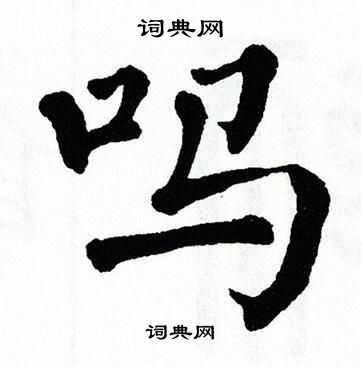 词典网
吗
词典网